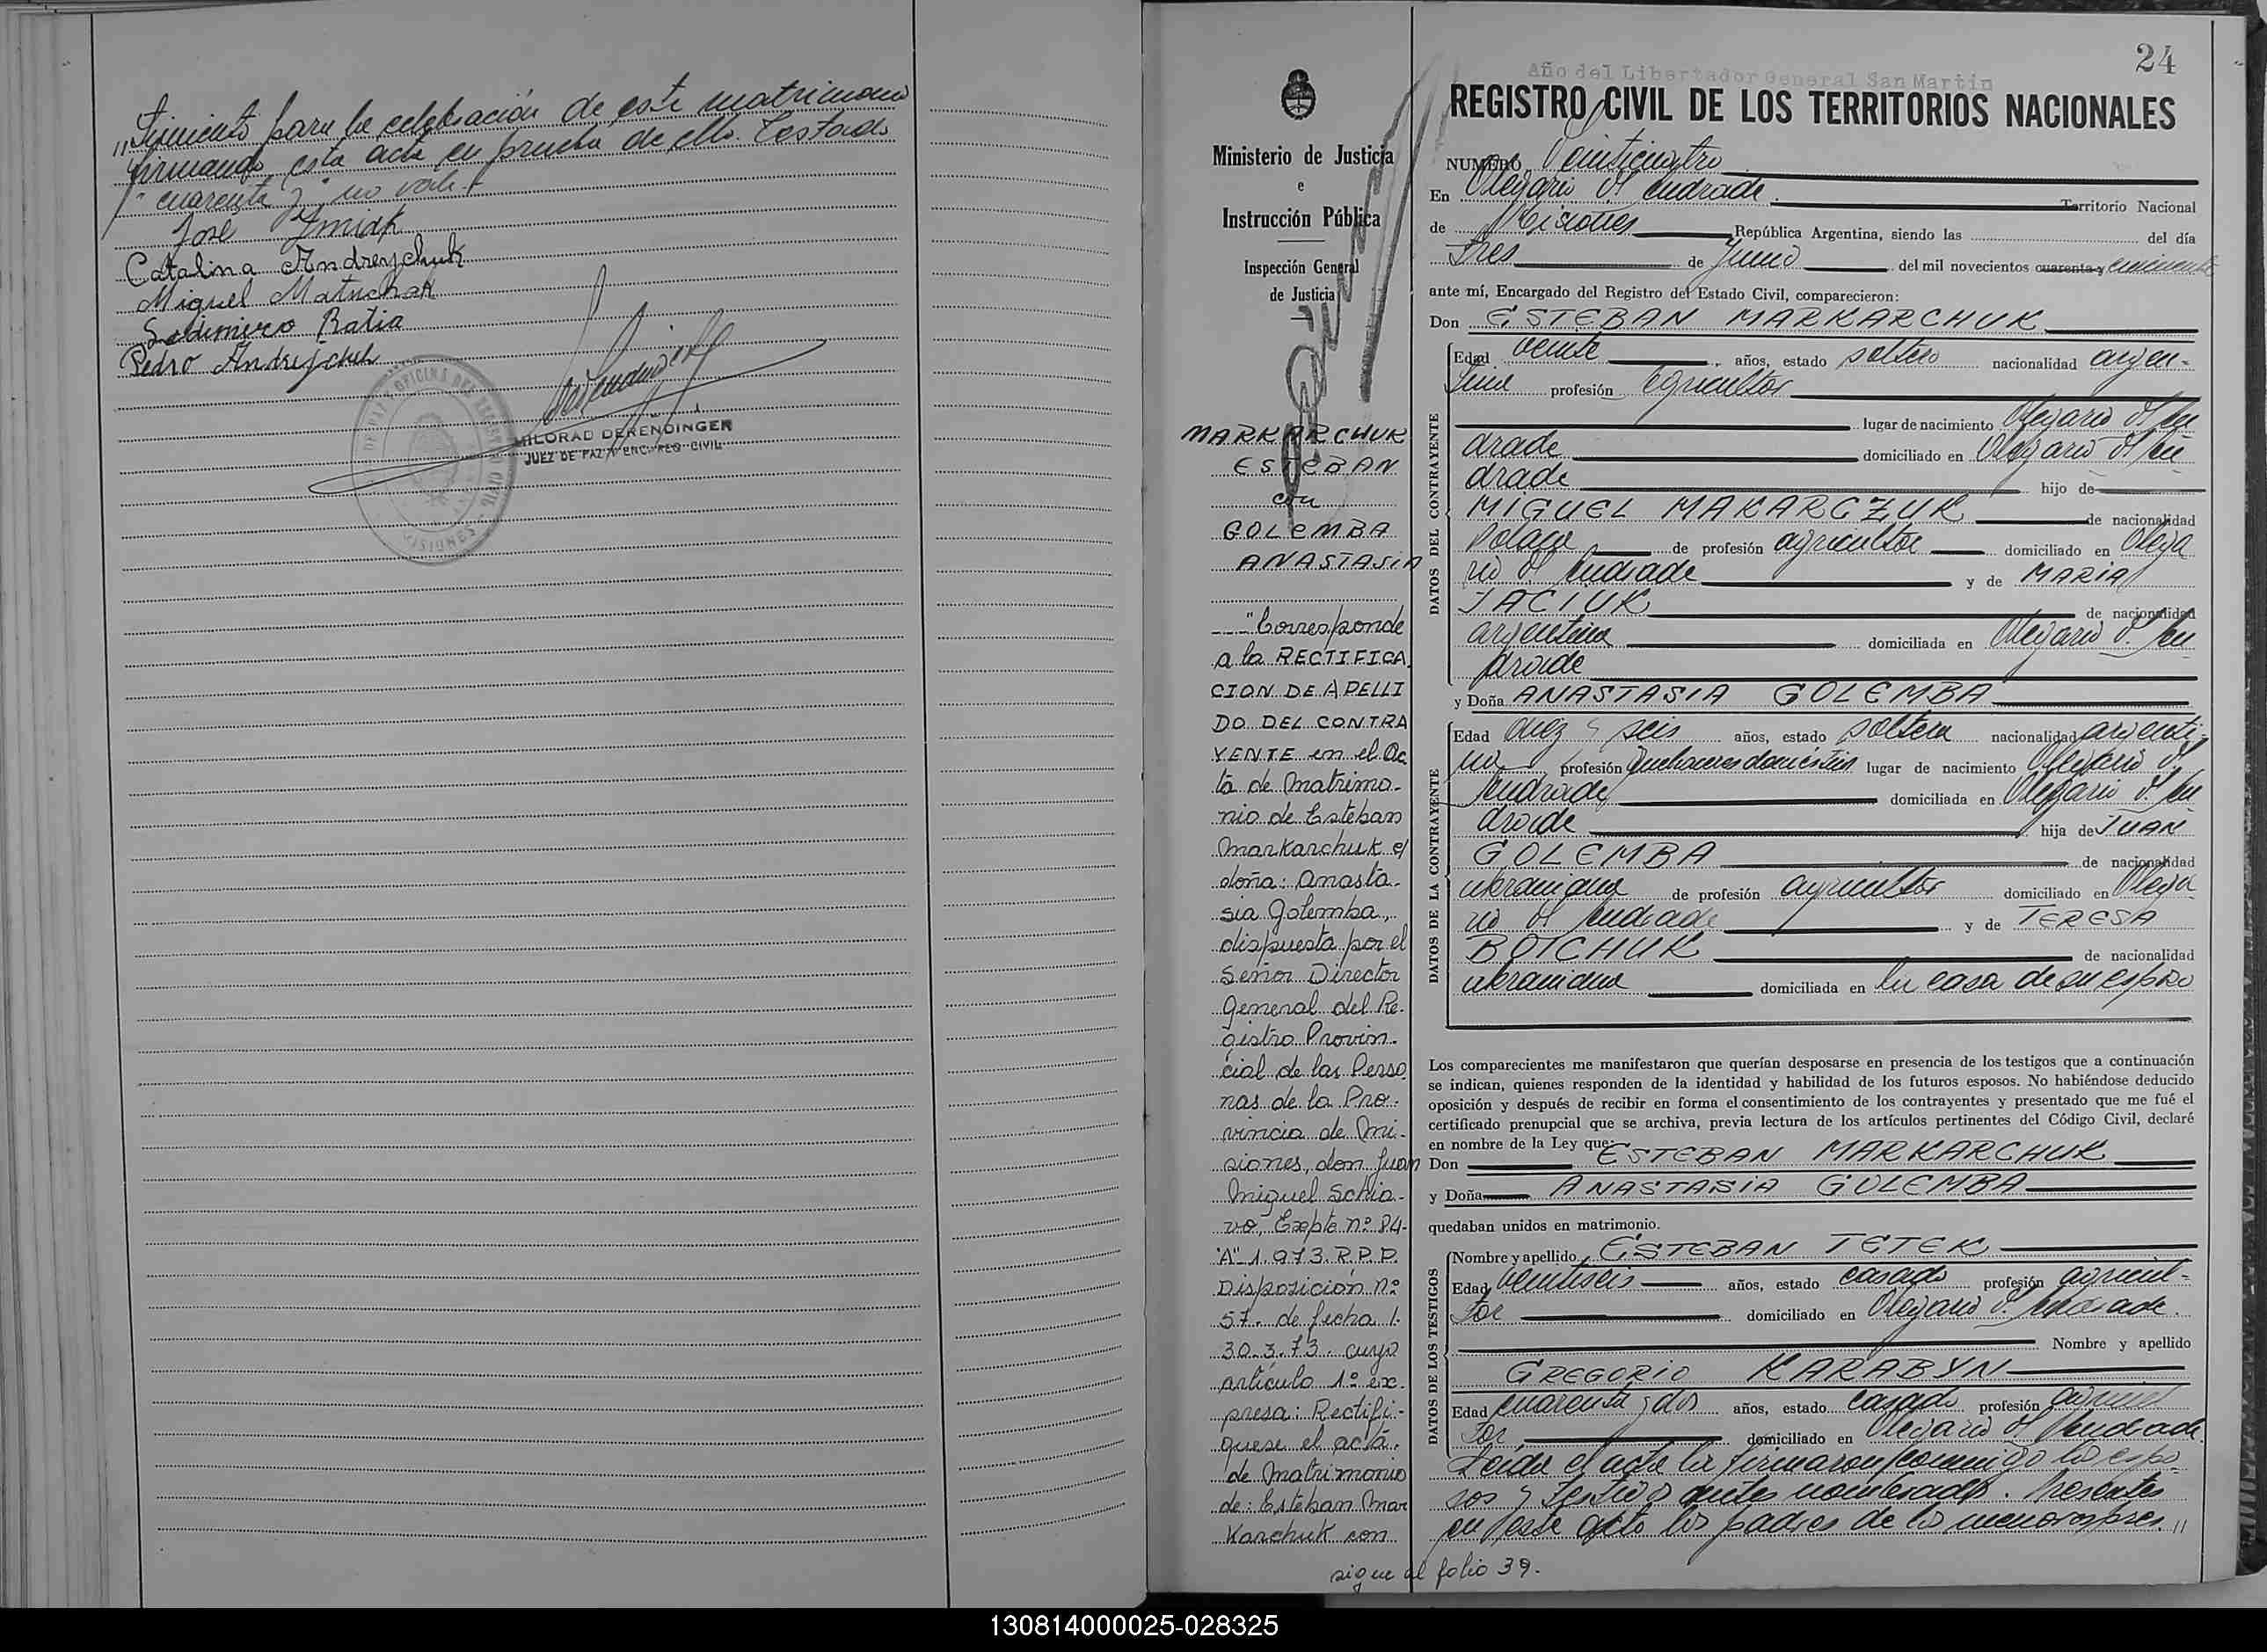 "timiento para la celebración de este matrimonio
firmando esta acta en prueba de ello. Testado
"cuarenta y" no vale.
José
Catalina Andreychuk
Miguel Matuchak
Batia
Pedro Andrejchuk
OFICINA DEL REGISTRO CIVIL
MISIONES
MILORAD DERENDINGER
JUEZ DE PAZ Y ENC. REG. CIVIL
24
Año del Libertador General San Martin
REGISTRO CIVIL DE LOS TERRITORIOS NACIONALES
Ministerio de Justicia
e
Instrucción Pública
Inspección General
de Justicia
MARKARCHUK
ESTEBAN
con
GOLEMBA
ANASTASIA
"Corresponde
a la RECTIFICA
CION DE APELLI
DO DEL CONTRA
YENTE en el Ac
ta de Matrimo-
nio de Esteban
Markarchuk c/
doña: Anasta-
sia Golemba,
dispuesta por el
Señor Director
General del Re-
gistro Provin-
cial de las Perso
nas de la Pro-
vincia de Mi-
siones, don Juan
Miguel Schia-
vo, Expte nº 84-
"A" 1.973. R.P.P.
Disposición nº
57. de fecha
30.3.73. cuyo
artículo 1º ex-
presa: Rectifi-
quese el acta
de Matrimonio
de: Esteban Mar
Karchuk con
sigue al folio 39.
NUMERO Veinticuatro
En Olegario V. Andrade Territorio Nacional
de Misiones República Argentina, siendo las del día
Tres de Junio del mil novecientos cuarenta y cincuenta
ante mí, Encargado del Registro del Estado Civil, comparecieron:
Don ESTEBAN MARKARCHUK
DATOS DEL CONTRAYENTE
Edad veinte años, estado soltero nacionalidad argen-
tina profesión agricultor
lugar de nacimiento Olegario V. An
drade domiciliado en Olegario V. An
drade hijo de
MIGUEL MAKARCZUK de nacionalidad
Polaca de profesión agricultor domiciliado en Olega
rio V. Andrade y de MARIA
JACIUK de nacionalidad
argentina domiciliada en Olegario V. An
drade
y Doña ANASTASIA GOLEMBA
DATOS DE LA CONTRAYENTE
Edad diez y seis años, estado soltera nacionalidad argenti-
na profesión quehaceres domésticos lugar de nacimiento Olegario V.
Andrade domiciliada en Olegario V. An
drade hija de JUAN
GOLEMBA de nacionalidad
ukraniana de profesión agricultor domiciliado en Olega
rio V. Andrade y de TERESA
BOICHUK de nacionalidad
ukraniana domiciliada en la casa de su esposo
Los comparecientes me manifestaron que querían desposarse en presencia de los testigos que a continuación
se indican, quienes responden de la identidad y habilidad de los futuros esposos. No habiéndose deducido
oposición y después de recibir en forma el consentimiento de los contrayentes y presentado que me fué el
certificado prenupcial que se archiva, previa lectura de los artículos pertinentes del Código Civil, declaré
en nombre de la Ley que:
Don ESTEBAN MARKARCHUK
y Doña ANASTASIA GOLEMBA
quedaban unidos en matrimonio.
DATOS DE LOS TESTIGOS
Nombre y apellido ESTEBAN TETEK
Edad veintiseis años, estado casado profesión agricul-
tor domiciliado en Olegario V. Andrade.
Nombre y apellido
GREGORIO KARABYN
Edad cuarenta y dos años, estado casado profesión agricul
tor domiciliado en Olegario V. Andrade
Leida el acta la firmaron conmigo los espo-
sos y testigos antes nombrados. Presentes
en este acto los padres de los menores pres. "
130814000025-028325